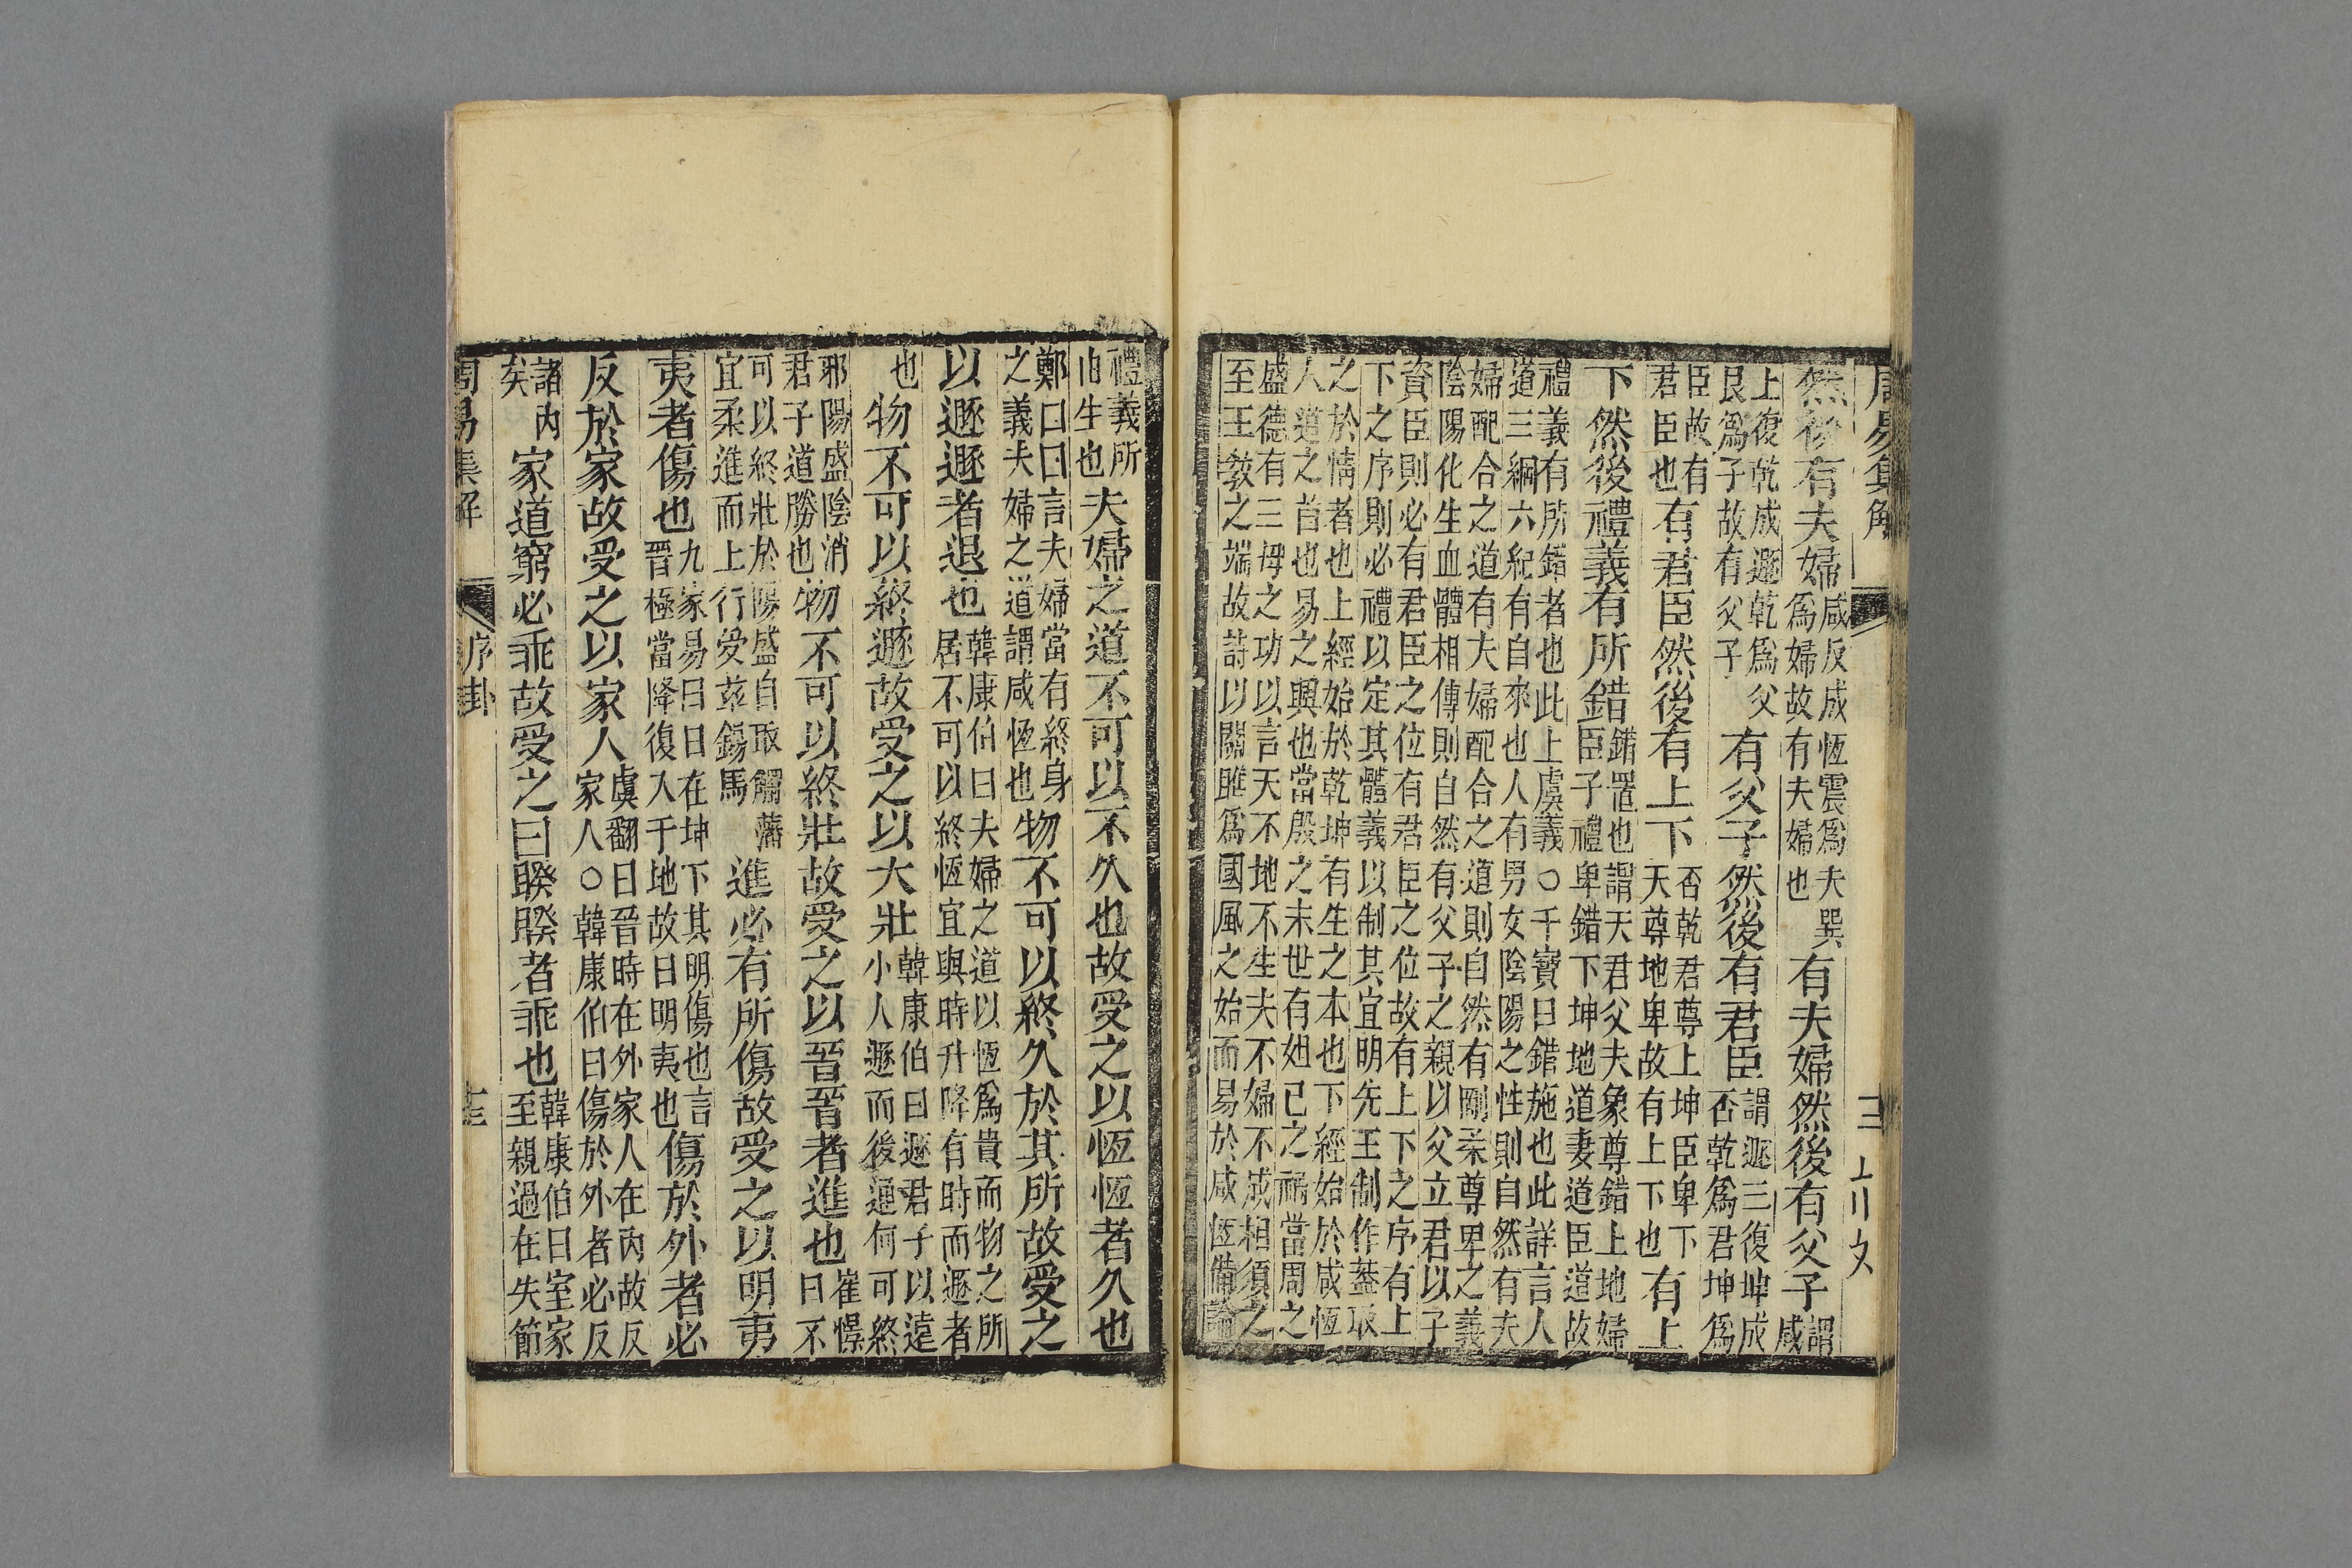 周易集解 三
然後有夫婦咸反成恆震爲夫巽爲婦故有夫婦也有夫婦然後有父子謂咸
上復乾成遯乾爲父艮爲子故有父子有父子然後有君臣謂遯三復坤成否乾爲君坤爲
臣故有君臣也有君臣然後有上下否乾君尊上坤臣卑下天尊地卑故有上下也有上
下然後禮義有所錯錯置也謂天君父夫象尊錯上地婦臣子禮卑錯下坤地道妻道臣道故
禮義有所錯者也此上虞義○千寶曰錯施也此詳言人
道三綱六紀有自來也人有男女陰陽之性則自然有夫
婦配合之道有夫婦配合之道則自然有剛柔尊卑之義
陰陽化生血體相傳則自然有父子之親以父立君以子
資臣則必有君臣之位有君臣之位故有上下之序有上
下之序則必禮以定其體義以制其宜明先王制作蓋取
之於情者也上經始於乾坤有生之本也下經始於咸恆
人道之首也易之興也當殷之末世有妲己之禍當周之
盛德有三母之功以言天不地不生夫不婦不成相須之
至王敎之端故詩以關雎爲國風之始而易於咸恆備論
禮義所由生也夫婦之道不可以不久也故受之以恆恆者久也
鄭曰曰言夫婦當有終身之義夫婦之道謂咸恆也物不可以終久於其所故受之
以遯遯者退也韓康伯曰夫婦之道以恆爲貴而物之所居不可以終恆宜與時升降有時而遯者
也物不可以終遯故受之以大壯韓康伯曰遯君子以遠小人遯而後通何可終
邪陽盛陰消君子道勝也物不可以終壯故受之以晉晉者進也崔憬曰不
可以終壯於陽盛自取觸藩宜柔進而上行受茲錫馬進必有所傷故受之以明夷
夷者傷也九家易曰日在坤下其明傷也言晉極當降復入于地故曰明夷也傷於外者必
反於家故受之以家人虞翻曰晉時在外家人在內故反家人○韓康伯曰傷於外者必反
諸內矣家道窮必乖故受之曰睽睽者乖也韓康伯曰室家至親過在失節
周易集解 序卦 十三